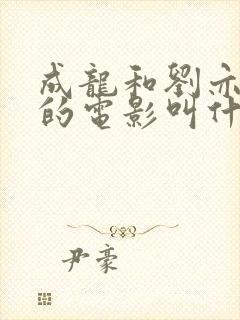 成龍和劉亦
的電影叫什
尹豪